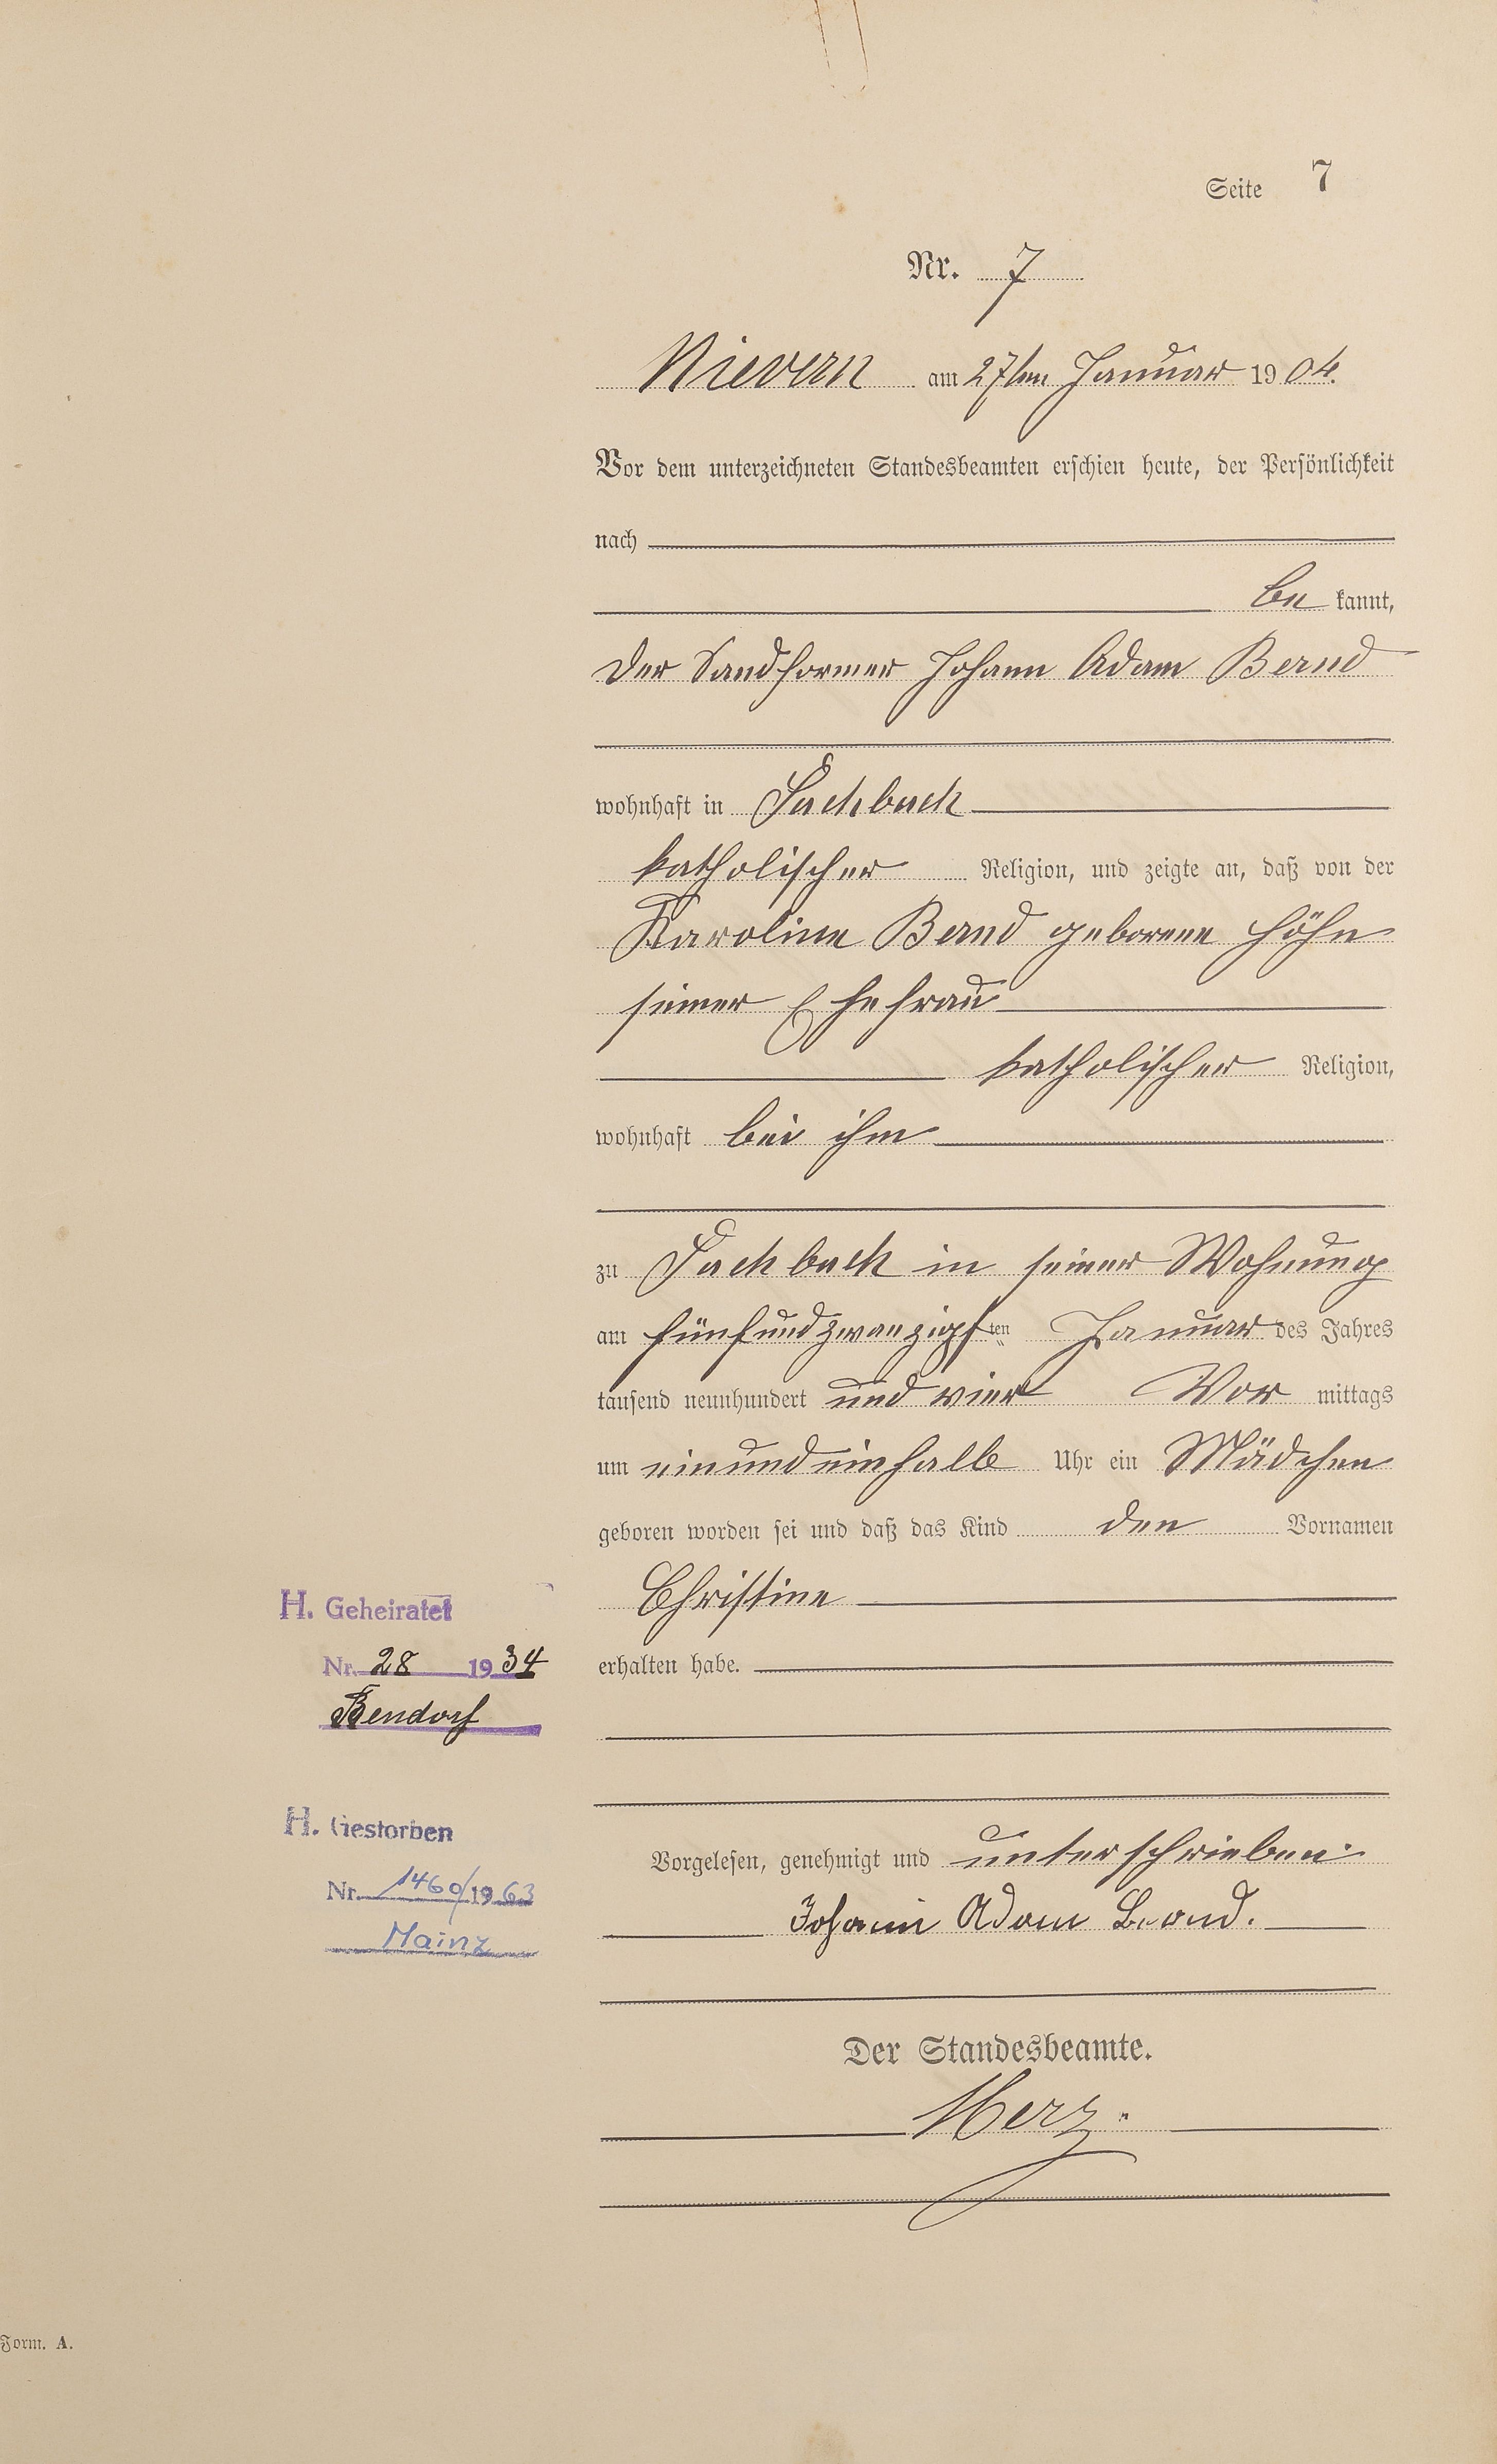 Seite 7
Nr. 7
Nievern am 27ten Januar 1904.
Vor dem unterzeichneten Standesbeamten erschien heute, der Persönlichkeit
nach
be kannt,
der Sandformer Johann Adam Bernd
wohnhaft in Fachbach
katholischer Religion, und zeigte an, daß von der
Karoline Bernd geborene Höhn
seiner Ehefrau
katholischer Religion,
wohnhaft bei ihm
zu Fachbach in seiner Wohnung
am fünfundzwanzigsten Januar des Jahres
tausend neunhundert und vier Vor mittags
um einundeinhalb Uhr ein Mädchen
geboren worden sei und daß das Kind den Vornamen
Christine
H. Geheiratet
erhalten habe.
Nr. 28 1934
Bendorf
H. Gestorben
Vorgelesen, genehmigt und unterschrieben
Nr. 1460/1963
Johann Adam Bernd.
Mainz
Der Standesbeamte.
Merz.
Form. A.